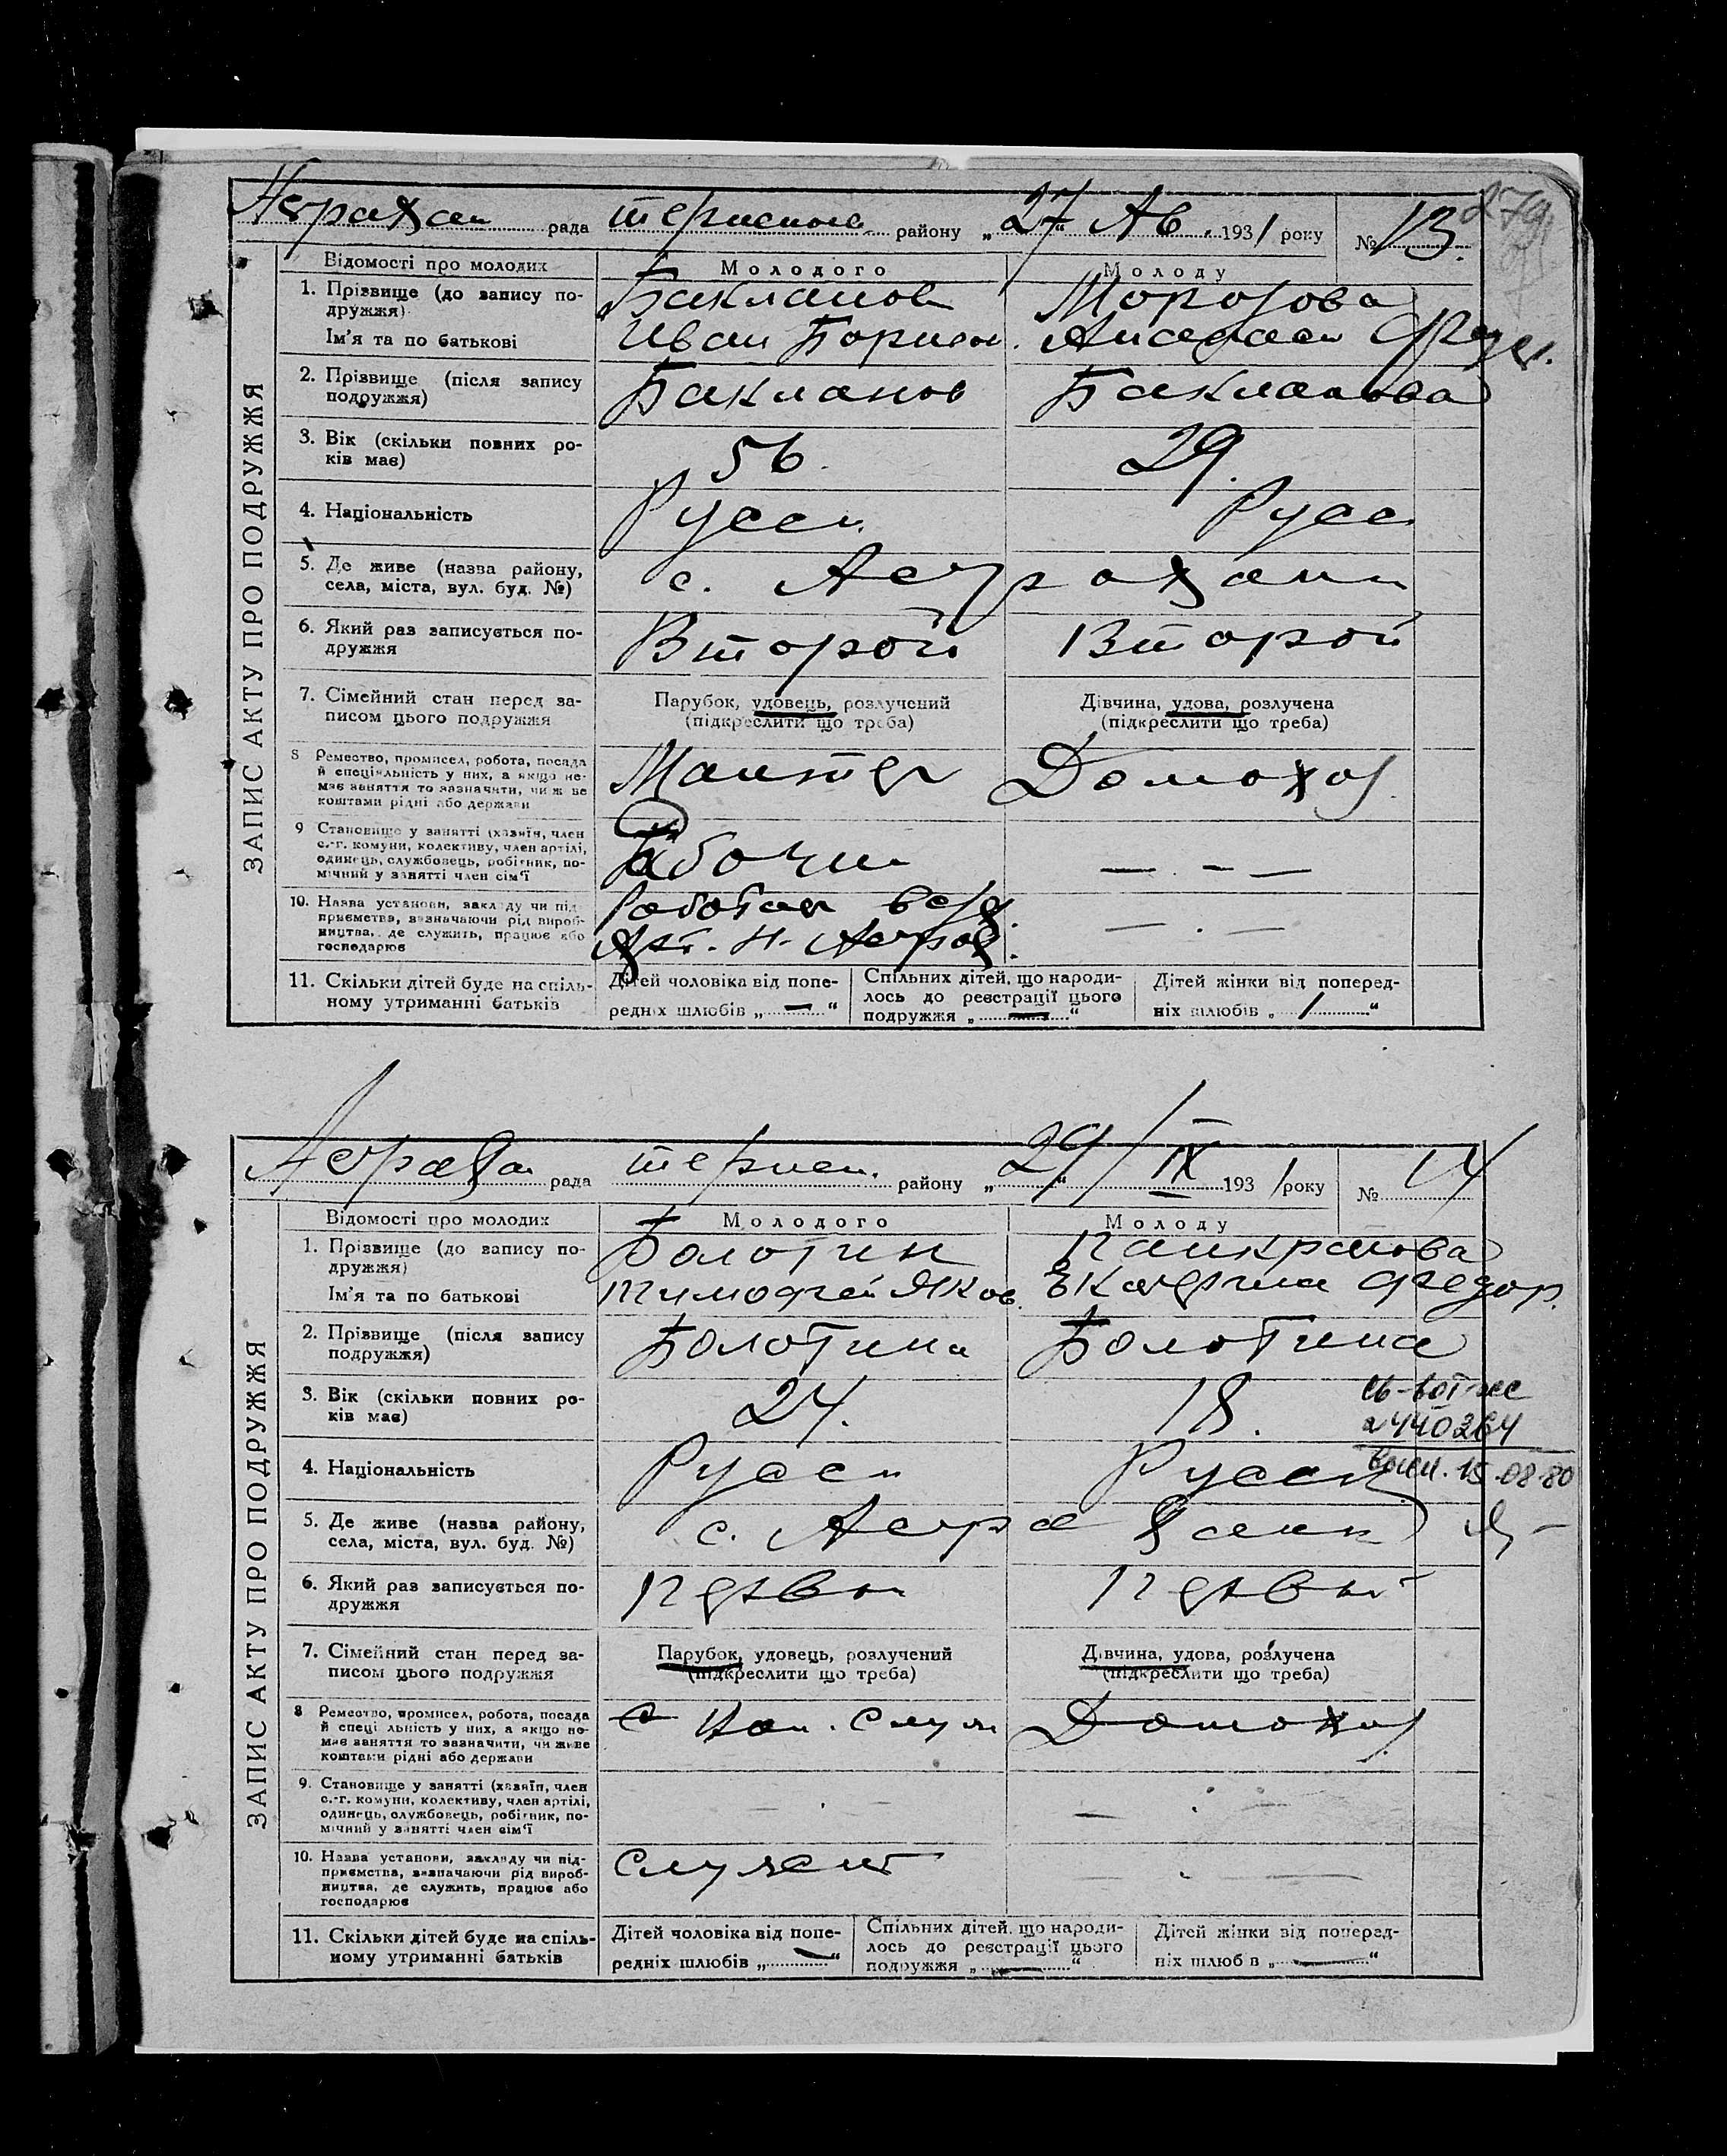 рада района „27“ Ав. 1931 року № 13.
279
ЗАПИС АКТУ ПРО ПОДРУЖЖЯ
Відомості про молодих
Молодого
Молоду
1. Прізвище (до запису по-
дружжя)
Ім'я та по батькові
Бакланов
Иван Борисов.
Морозова
2. Прізвище (після запису
подружжя)
Бакланов
Бакланова
3. Вік (скільки повних ро-
ків має)
56.
29.
4. Національність
Русск.
Русс
5. Де живе (назва району,
села, міста, вул. буд. №)
с. Астрахани
6. Який раз записується по-
дружжя
Второй
Второй
7. Сімейний стан перед за-
писом цього подружжя
Парубок, удовець, розлучений
(підкреслити що треба)
Дівчина, удова, розлучена
(підкреслити що треба)
8 Ремество, промисел, робота, посада
й спеціяльність у них, а якщо не-
має заняття то зазначити, чиж ве
коштами рідні або держави
Домохоз.
9 Становище у занятті (хазяїн, член
с.-г. комуни, колективу, член артілі,
одинець, службовець, робітник, по-
мічний у занятті член сім'ї
Рабочи
— . - —
10. Назва установи, закладу чи під-
приємства, зазначаючи рід вироб-
ництва, де служить, працює або
господарює
— . —
11. Скільки дітей буде на спіль-
ному утриманні батьків
Дітей чоловіка від попе-
редніх шлюбів „ — “
Спільних дітей, що народи-
лось до реєстрації цього
подружжя „ — “
Дітей жінки від поперед-
ніх шлюбів „ 1 “
рада району „29/IX 1931 року № 14
ЗАПИС АКТУ ПРО ПОДРУЖЖЯ
Відомості про молодих
Молодого
Молоду
1. Прізвище (до запису по-
дружжя)
Ім'я та по батькові
Болотин
Тимофей Яков.
Панкратова
Екатерина Федор.
2. Прізвище (після запису
подружжя)
Болотина
Болотина
3. Вік (скільки повних ро-
ків має)
24.
18.
440264
15.08.80
4. Національність
Русск
Русск
5. Де живе (назва району,
села, міста, вул. буд. №)
с. Астрахани
6. Який раз записується по-
дружжя
Первы
Первый
7. Сімейний стан перед за-
писом цього подружжя
Парубок, удовець, розлучений
(підкреслити що треба)
Дівчина, удова, розлучена
(підкреслити що треба)
8 Ремество, промисел, робота, посада
й спеціяльність у них, а якщо не-
має заняття то зазначити, чи живе
коштами рідні або держави
Домохоз.
9. Становище у занятті (хазяїн, член
с.-г. комуни, колективу, член артілі,
одинець, службовець, робітник, по-
мічний у занятті член сім'ї
— . —
— . —
10. Назва установи, закладу чи під-
приємства, зазначаючи рід вироб-
ництва, де служить, працює або
господарює
Служит
— . —
11. Скільки дітей буде на спіль-
ному утриманні батьків
Дітей чоловіка від попе-
редніх шлюбів „ — “
Спільних дітей, що народи-
лось до реєстрації цього
подружжя „ — “
Дітей жінки від поперед-
ніх шлюбів „ — “